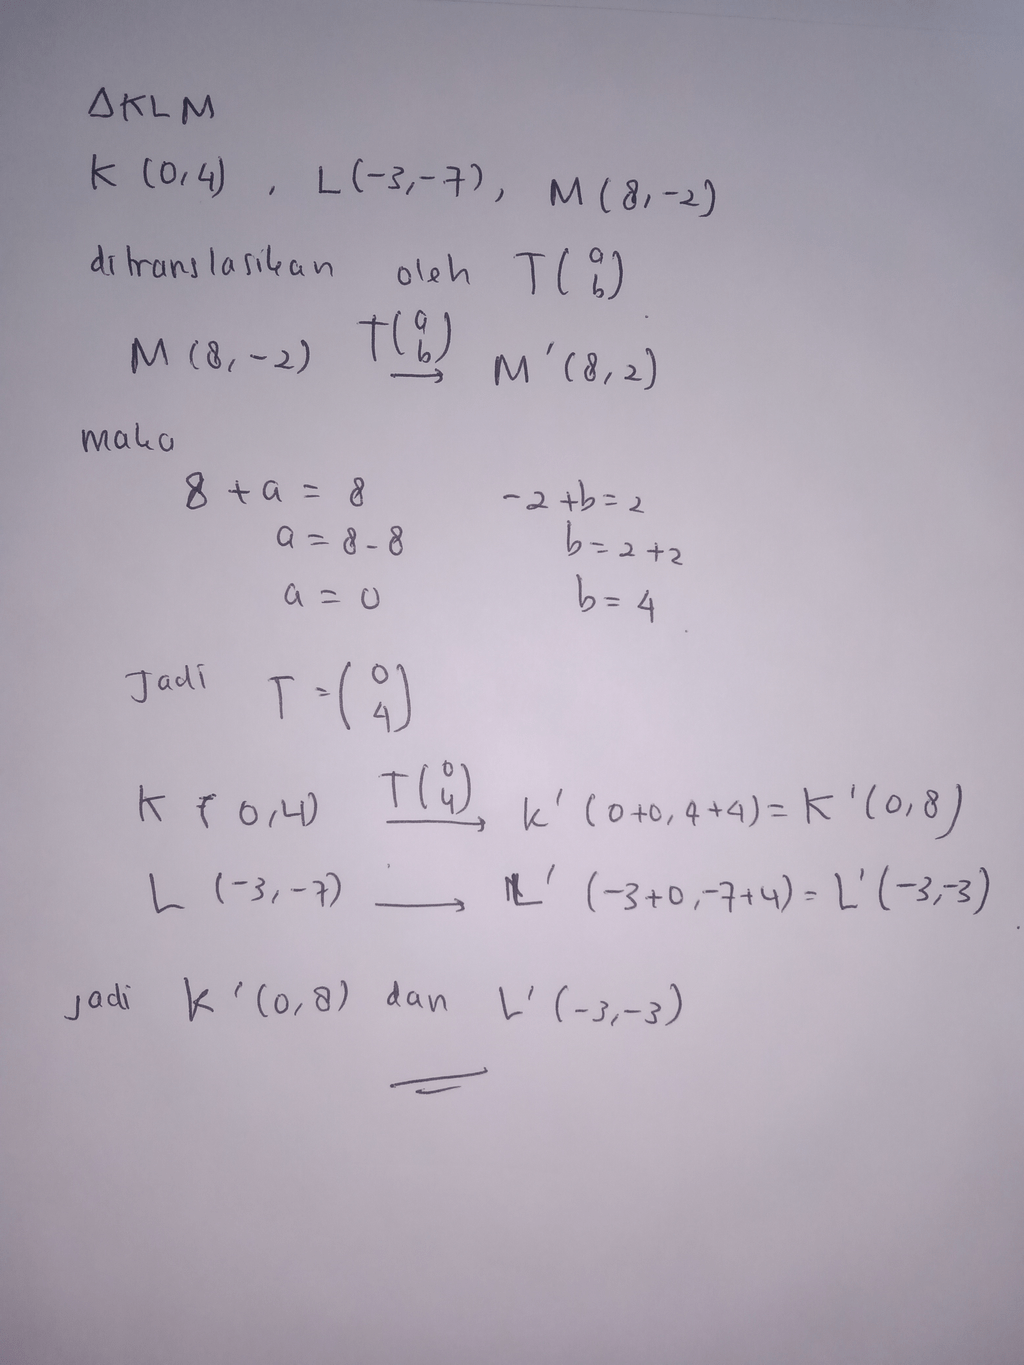 ΔKLM
K (0,4) , L(-3,-7), M(8,-2)
ditranslasikan oleh T(a b)
M (8,-2) T(a b) → M'(8,2)
maka
8 + a = 8 -2 +b = 2
a = 8 - 8 b = 2 +2
a = 0 b = 4
Jadi T = (0 4)
K (0,4) T(0 4) → K' (0+0, 4+4) = K'(0,8)
L (-3,-7) → L' (-3+0,-7+4) = L'(-3,-3)
jadi K'(0,8) dan L'(-3,-3)